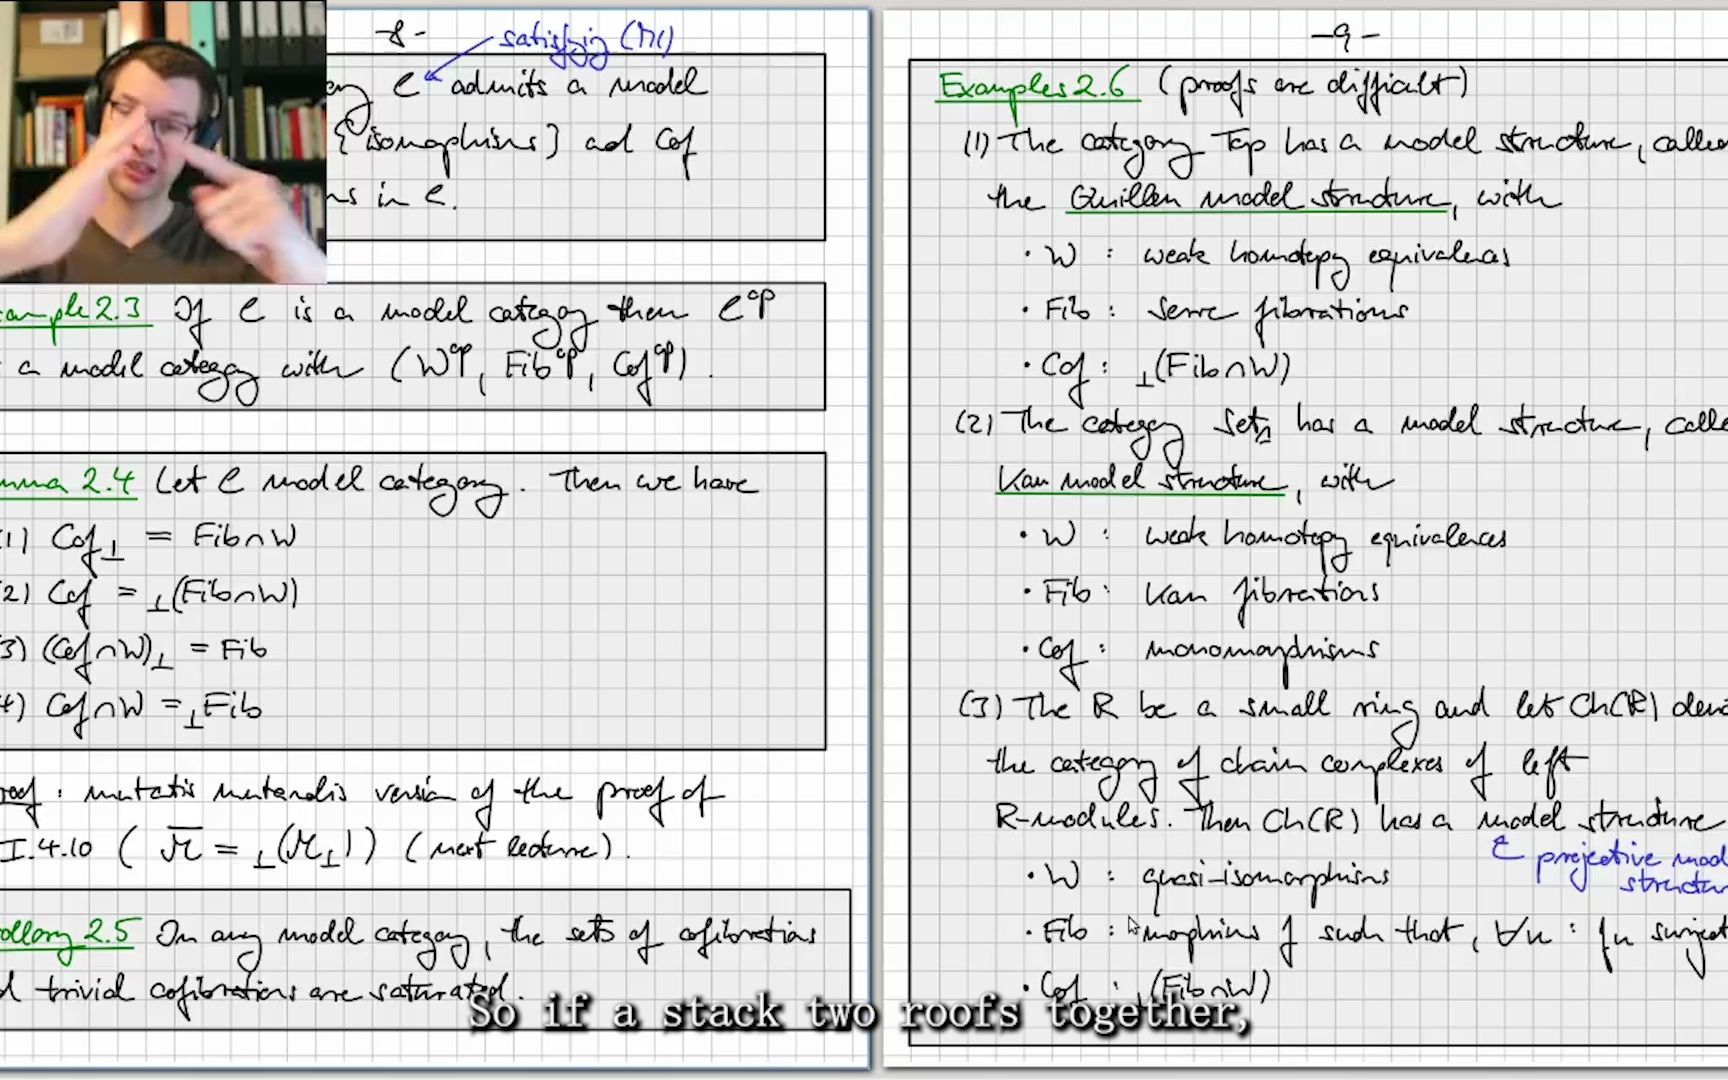 -8-
satisfying (M1)
C admits a model
{isomorphisms} and Cof
in C.
ample 2.3 If C is a model category then C^op
a model category with (W^op, Fib^op, Cof^op).
mma 2.4 Let C model category. Then we have
1) Cof⊥ = Fib∩W
2) Cof = ⊥(Fib∩W)
3) (Cof∩W)⊥ = Fib
4) Cof∩W = ⊥Fib
oof: mutatis mutandis version of the proof of
I.4.10 ( M̄ = ⊥(M⊥) ) (next lecture).
ollary 2.5 In any model category, the sets of cofibrations
d trivial cofibrations are saturated.
-9-
Examples 2.6 (proofs are difficult)
(1) The category Top has a model structure, calle
the Quillen model structure, with
· W : weak homotopy equivalences
· Fib : Serre fibrations
· Cof : ⊥(Fib∩W)
(2) The category SetΔ has a model structure, calle
Kan model structure, with
· W : weak homotopy equivalences
· Fib : Kan fibrations
· Cof : monomorphisms
(3) The R be a small ring and let Ch(R) deno
the category of chain complexes of left
R-modules. Then Ch(R) has a model structure
projective mod
structur
· W : quasi-isomorphisms
· Fib : morphisms f such that, ∀n : fn surject
· Cof : ⊥(Fib∩W)
So if a stack two roofs together,